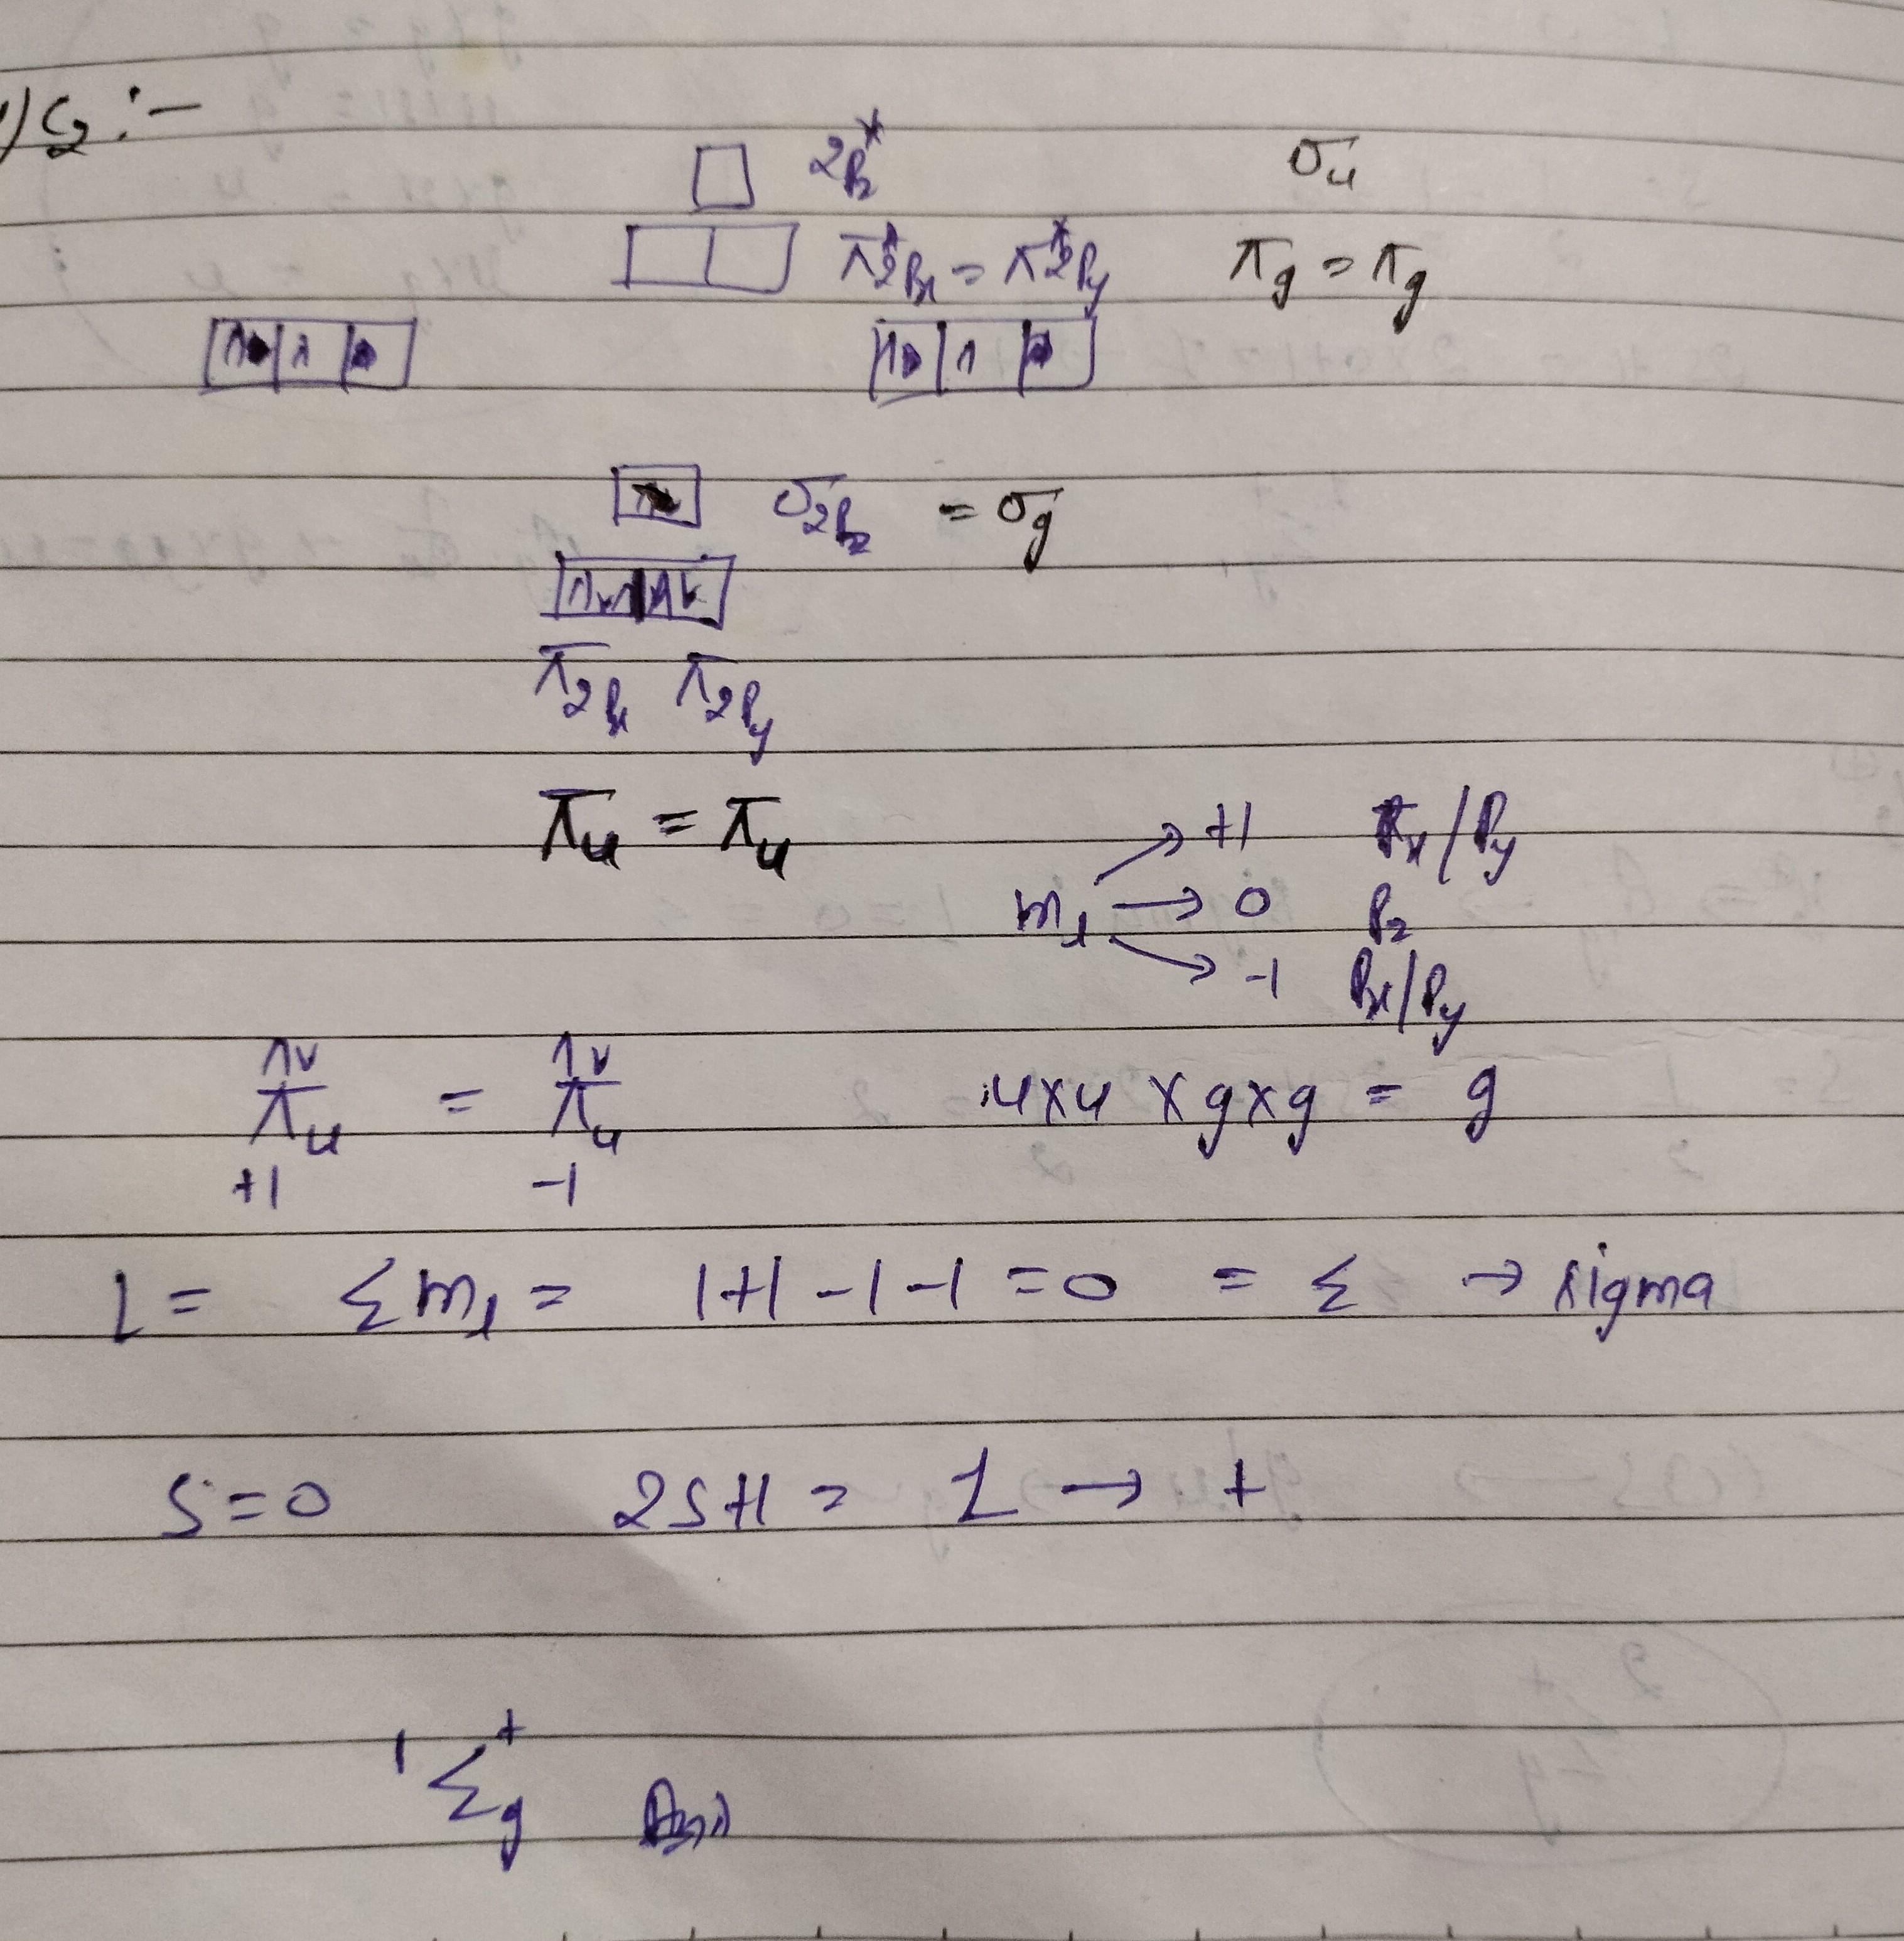 C₂ :-
2Pz* σu
π*2Px = π*2Py πg = πg
σ2Pz = σg
π2Px π2Py
πu = πu
+1 Px/Py
ml → 0 Pz
-1 Px/Py
πu = πu u x u x g x g = g
+1 -1
L = Σml = 1+1-1-1 = 0 = Σ → sigma
S=0 2S+1 = 1 → +
¹Σg⁺ Ans